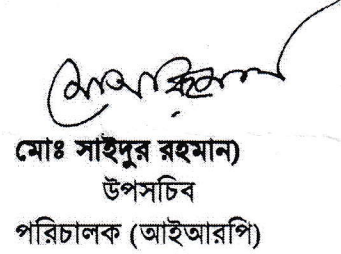 মোঃ সাইদুর রহমান)
উপসচিব
পরিচালক (আইআরপি)